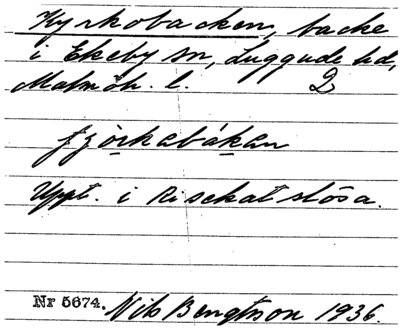 Kyrkobacken, backe
i Ekeby sn, Luggude hd,
Malmöh. l. 2
Uppt. i Risekatslösa.
Nr 5674. Nils Bengtsson 1936.